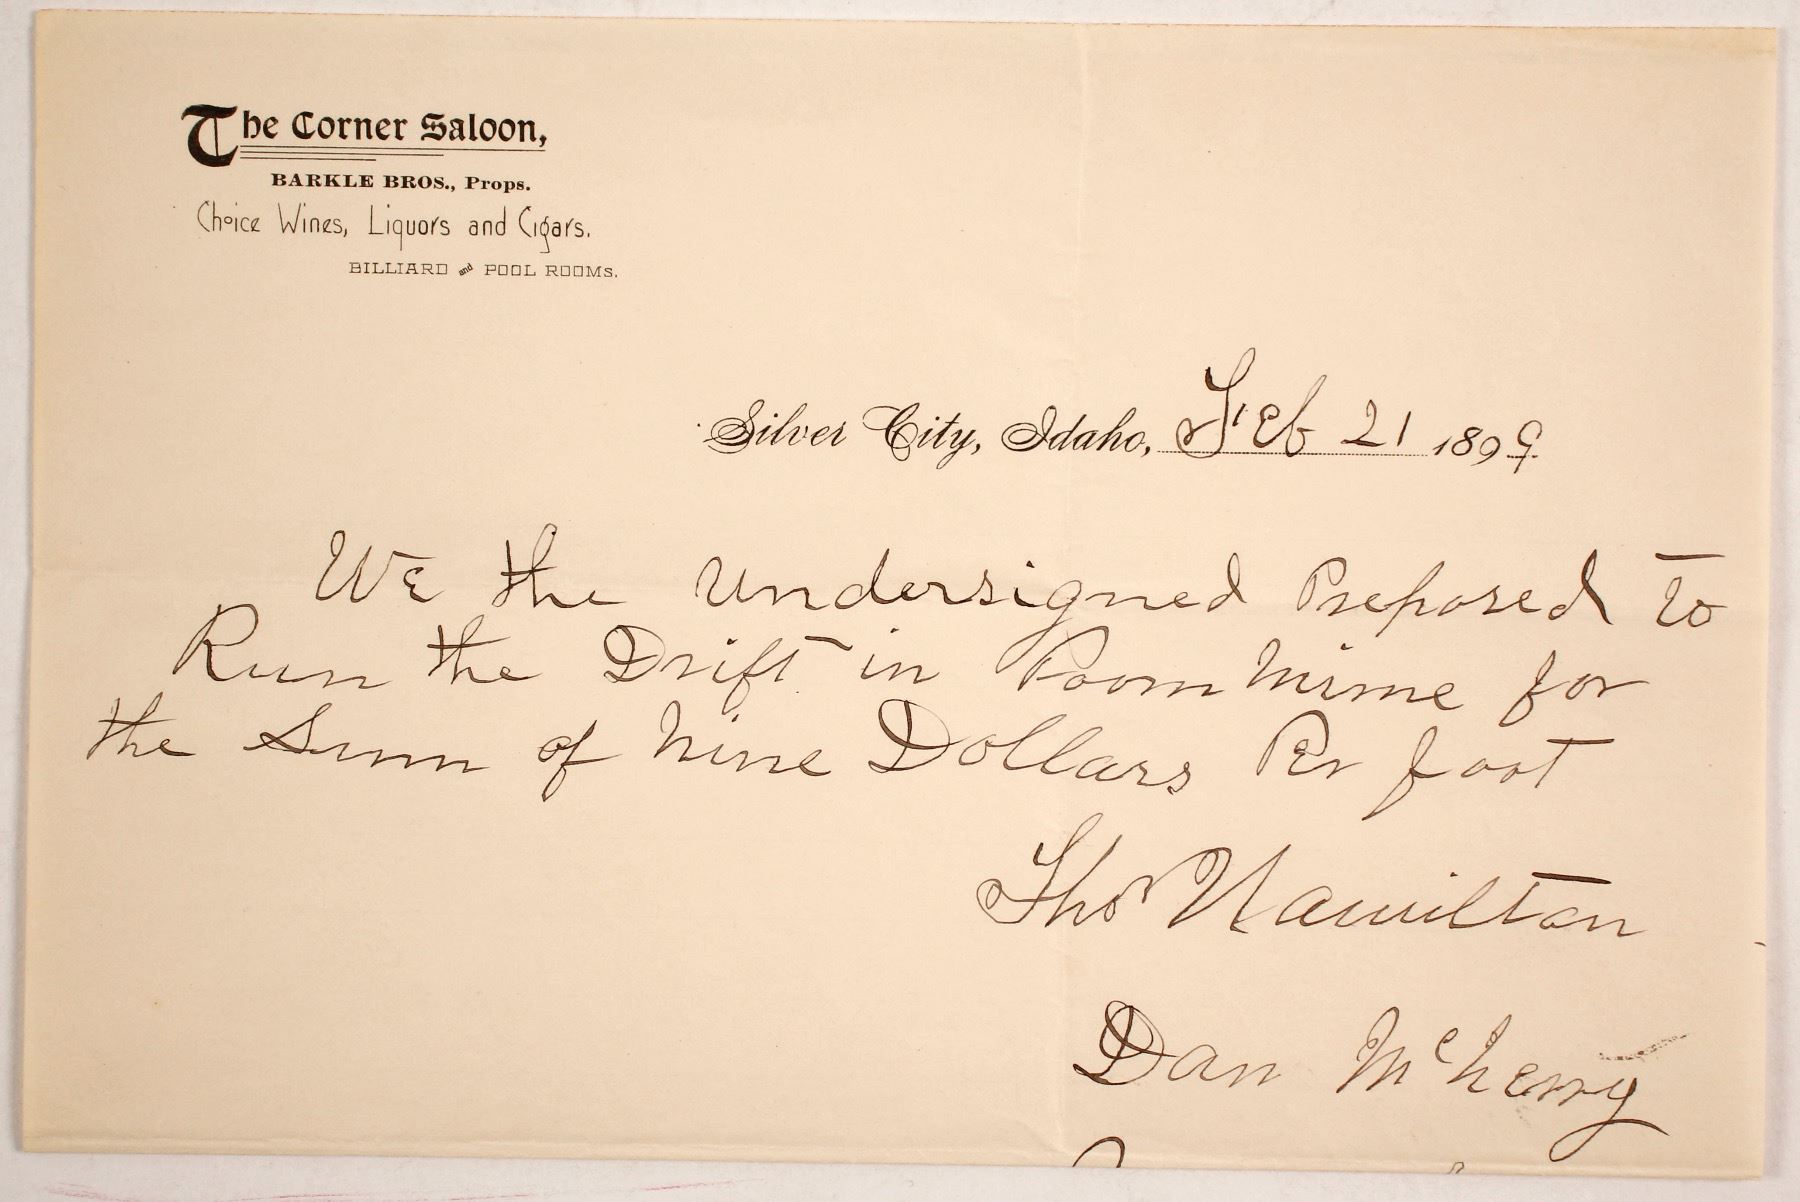 The Corner Saloon,
BARKLE BROS., Props.
Choice Wines, Liquors and Cigars.
BILLIARD and POOL ROOMS.
Silver City, Idaho, Feb 21 1899
We the undersigned Preposed to
Run the Drift in Poorm Mime for
the Sum of Nine Dollars Per foot
Thos Hamilton
Dan McHerry